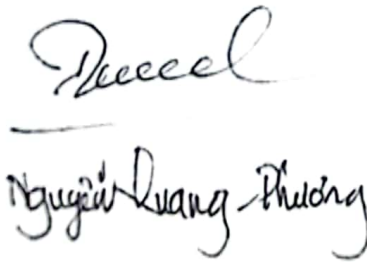 Nguyễn Quang Phương